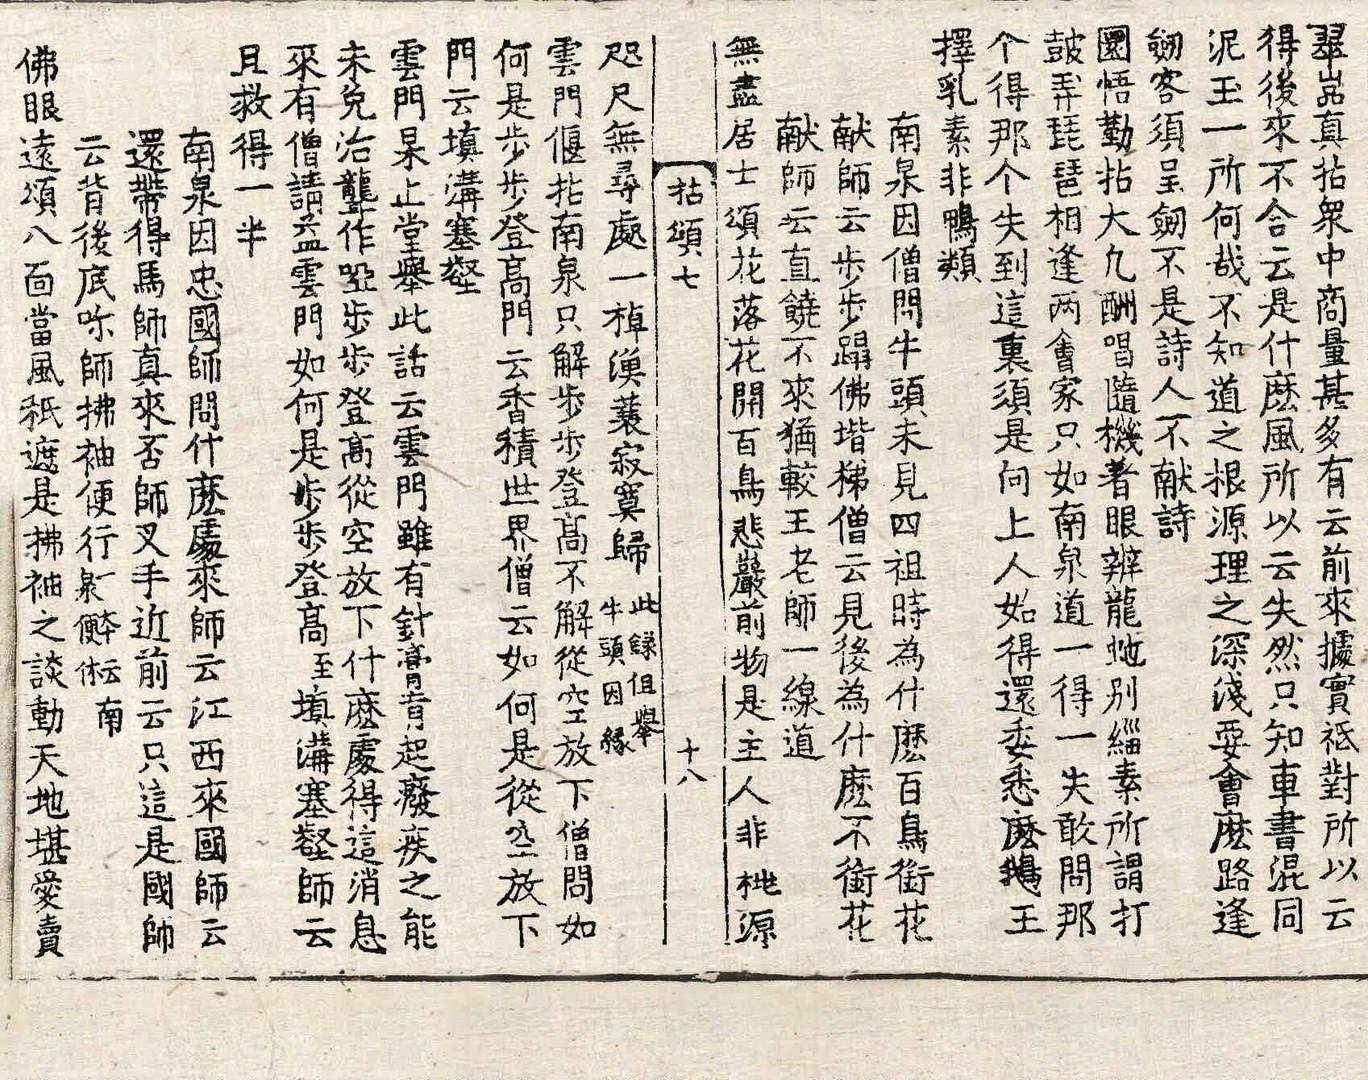 翠嵓真拈衆中商量甚多有云前來據實祇對所以云
得後來不合云是什麽風所以云失然只知車書混同
泥玉一所何哉不知道之根源理之深淺要會麽路逢
劒客須呈劒不是詩人不献詩
圜悟勤拈大凢酬唱隨機著眼辨龍虵別緇素所謂打
皷弄琵琶相逢两會家只如南泉道一得一失敢問那
个得那个失到這裏須是向上人始得還委悉麽鵝王
擇乳素非鴨類
南泉因僧問牛頭未見四祖時為什麽百鳥銜花
献師云步步躡佛堦梯僧云見後為什麽不銜花
献師云直饒不來猶較王老師一線道
無盡居士頌花落花開百鳥悲巖前物是主人非桃源
拈頌七 十八
咫尺無尋處一棹漁蓑寂寞歸 此録但舉牛頭因緣
雲門偃拈南泉只解步步登髙不解從空放下僧問如
何是步步登髙門云香積世界僧云如何是從空放下
門云填溝塞壑
雲門杲上堂舉此話云雲門雖有針膏肓起廢疾之能
未免治聾作啞步步登髙從空放下什麽處得這消息
來有僧請益雲門如何是步步登髙至填溝塞壑師云
且救得一半
南泉因忠國師問什麽處來師云江西來國師云
還帶得馬師真來否師叉手近前云只這是國師
云背後底咏師拂袖便行 一本云南泉便休
佛眼遠頌八面當風秖遮是拂袖之談動天地堪愛賣